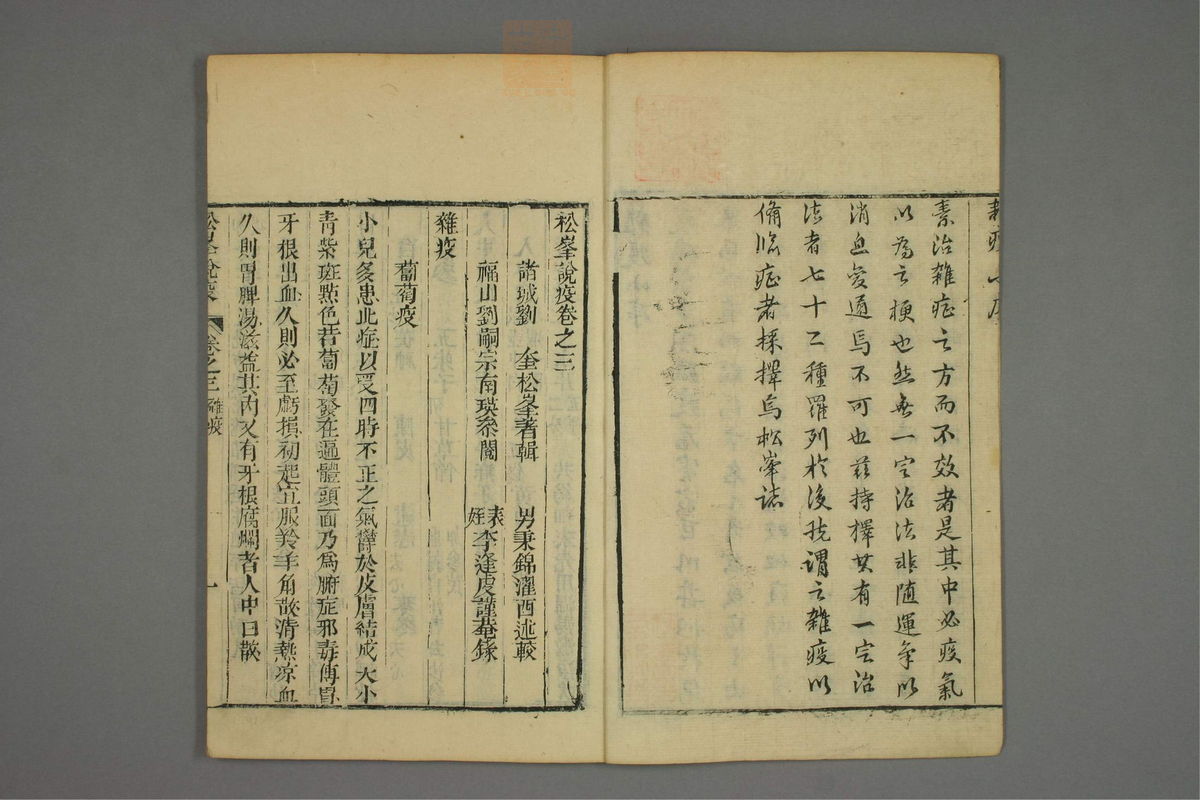 素治雜症之方而不效者是其中必疫氣
以為之梗也然無一定治法非隨運氣以
消息變通焉不可也茲特擇其有一定治
法者七十二種羅列於後統謂之雜疫以
備臨症者採擇焉松峯誌
松峯說疫卷之三
諸城劉 奎松峯著輯 男秉錦濯西述較
福山劉嗣宗南瑛參閱 表姪李逢虔謹菴錄
雜疫
葡萄疫
小兒多患此症以受四時不正之氣鬱於皮膚結成大小
青紫斑點色若葡萄發在遍體頭面乃為腑症邪毒傳胃
牙根出血久則必至虧損初起宜服羚羊角散清熱凉血
久則胃脾湯滋益其內又有牙根腐爛者人中白散
松峯說疫 卷之三 雜疫 一